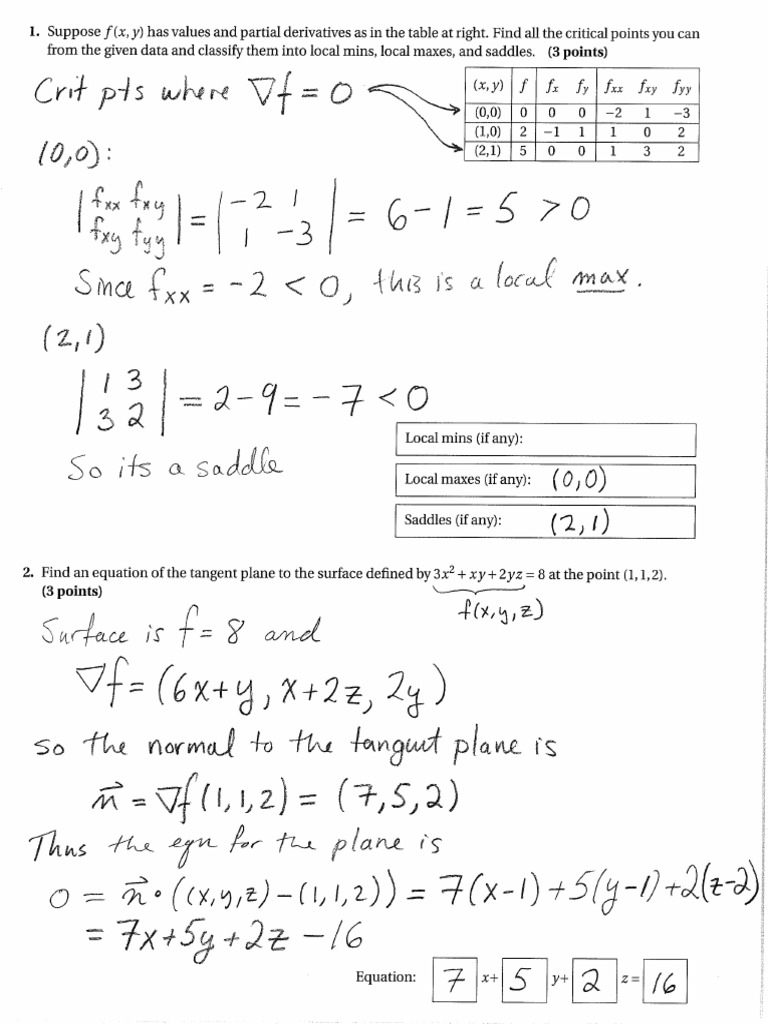 1. Suppose f(x, y) has values and partial derivatives as in the table at right. Find all the critical points you can
from the given data and classify them into local mins, local maxes, and saddles. (3 points)
Crit pts where ∇f = 0
(x, y) f fx fy fxx fxy fyy
(0,0) 0 0 0 −2 1 −3
(1,0) 2 −1 1 1 0 2
(2,1) 5 0 0 1 3 2
(0,0):
| fxx fxy | = | −2 1 | = 6 − 1 = 5 > 0
| fxy fyy | | 1 −3 |
Since fxx = −2 < 0, this is a local max.
(2,1)
| 1 3 | = 2 − 9 = −7 < 0
| 3 2 |
So its a saddle
Local mins (if any):
Local maxes (if any): (0,0)
Saddles (if any): (2,1)
2. Find an equation of the tangent plane to the surface defined by 3x² + xy + 2yz = 8 at the point (1, 1, 2).
(3 points)
f(x,y,z)
Surface is f = 8 and
∇f = (6x+y, x+2z, 2y)
so the normal to the tangent plane is
n⃗ = ∇f(1,1,2) = (7,5,2)
Thus the eqn for the plane is
0 = n⃗ • ((x,y,z) − (1,1,2)) = 7(x−1) + 5(y−1) + 2(z−2)
= 7x + 5y + 2z − 16
Equation: 7 x+ 5 y+ 2 z = 16